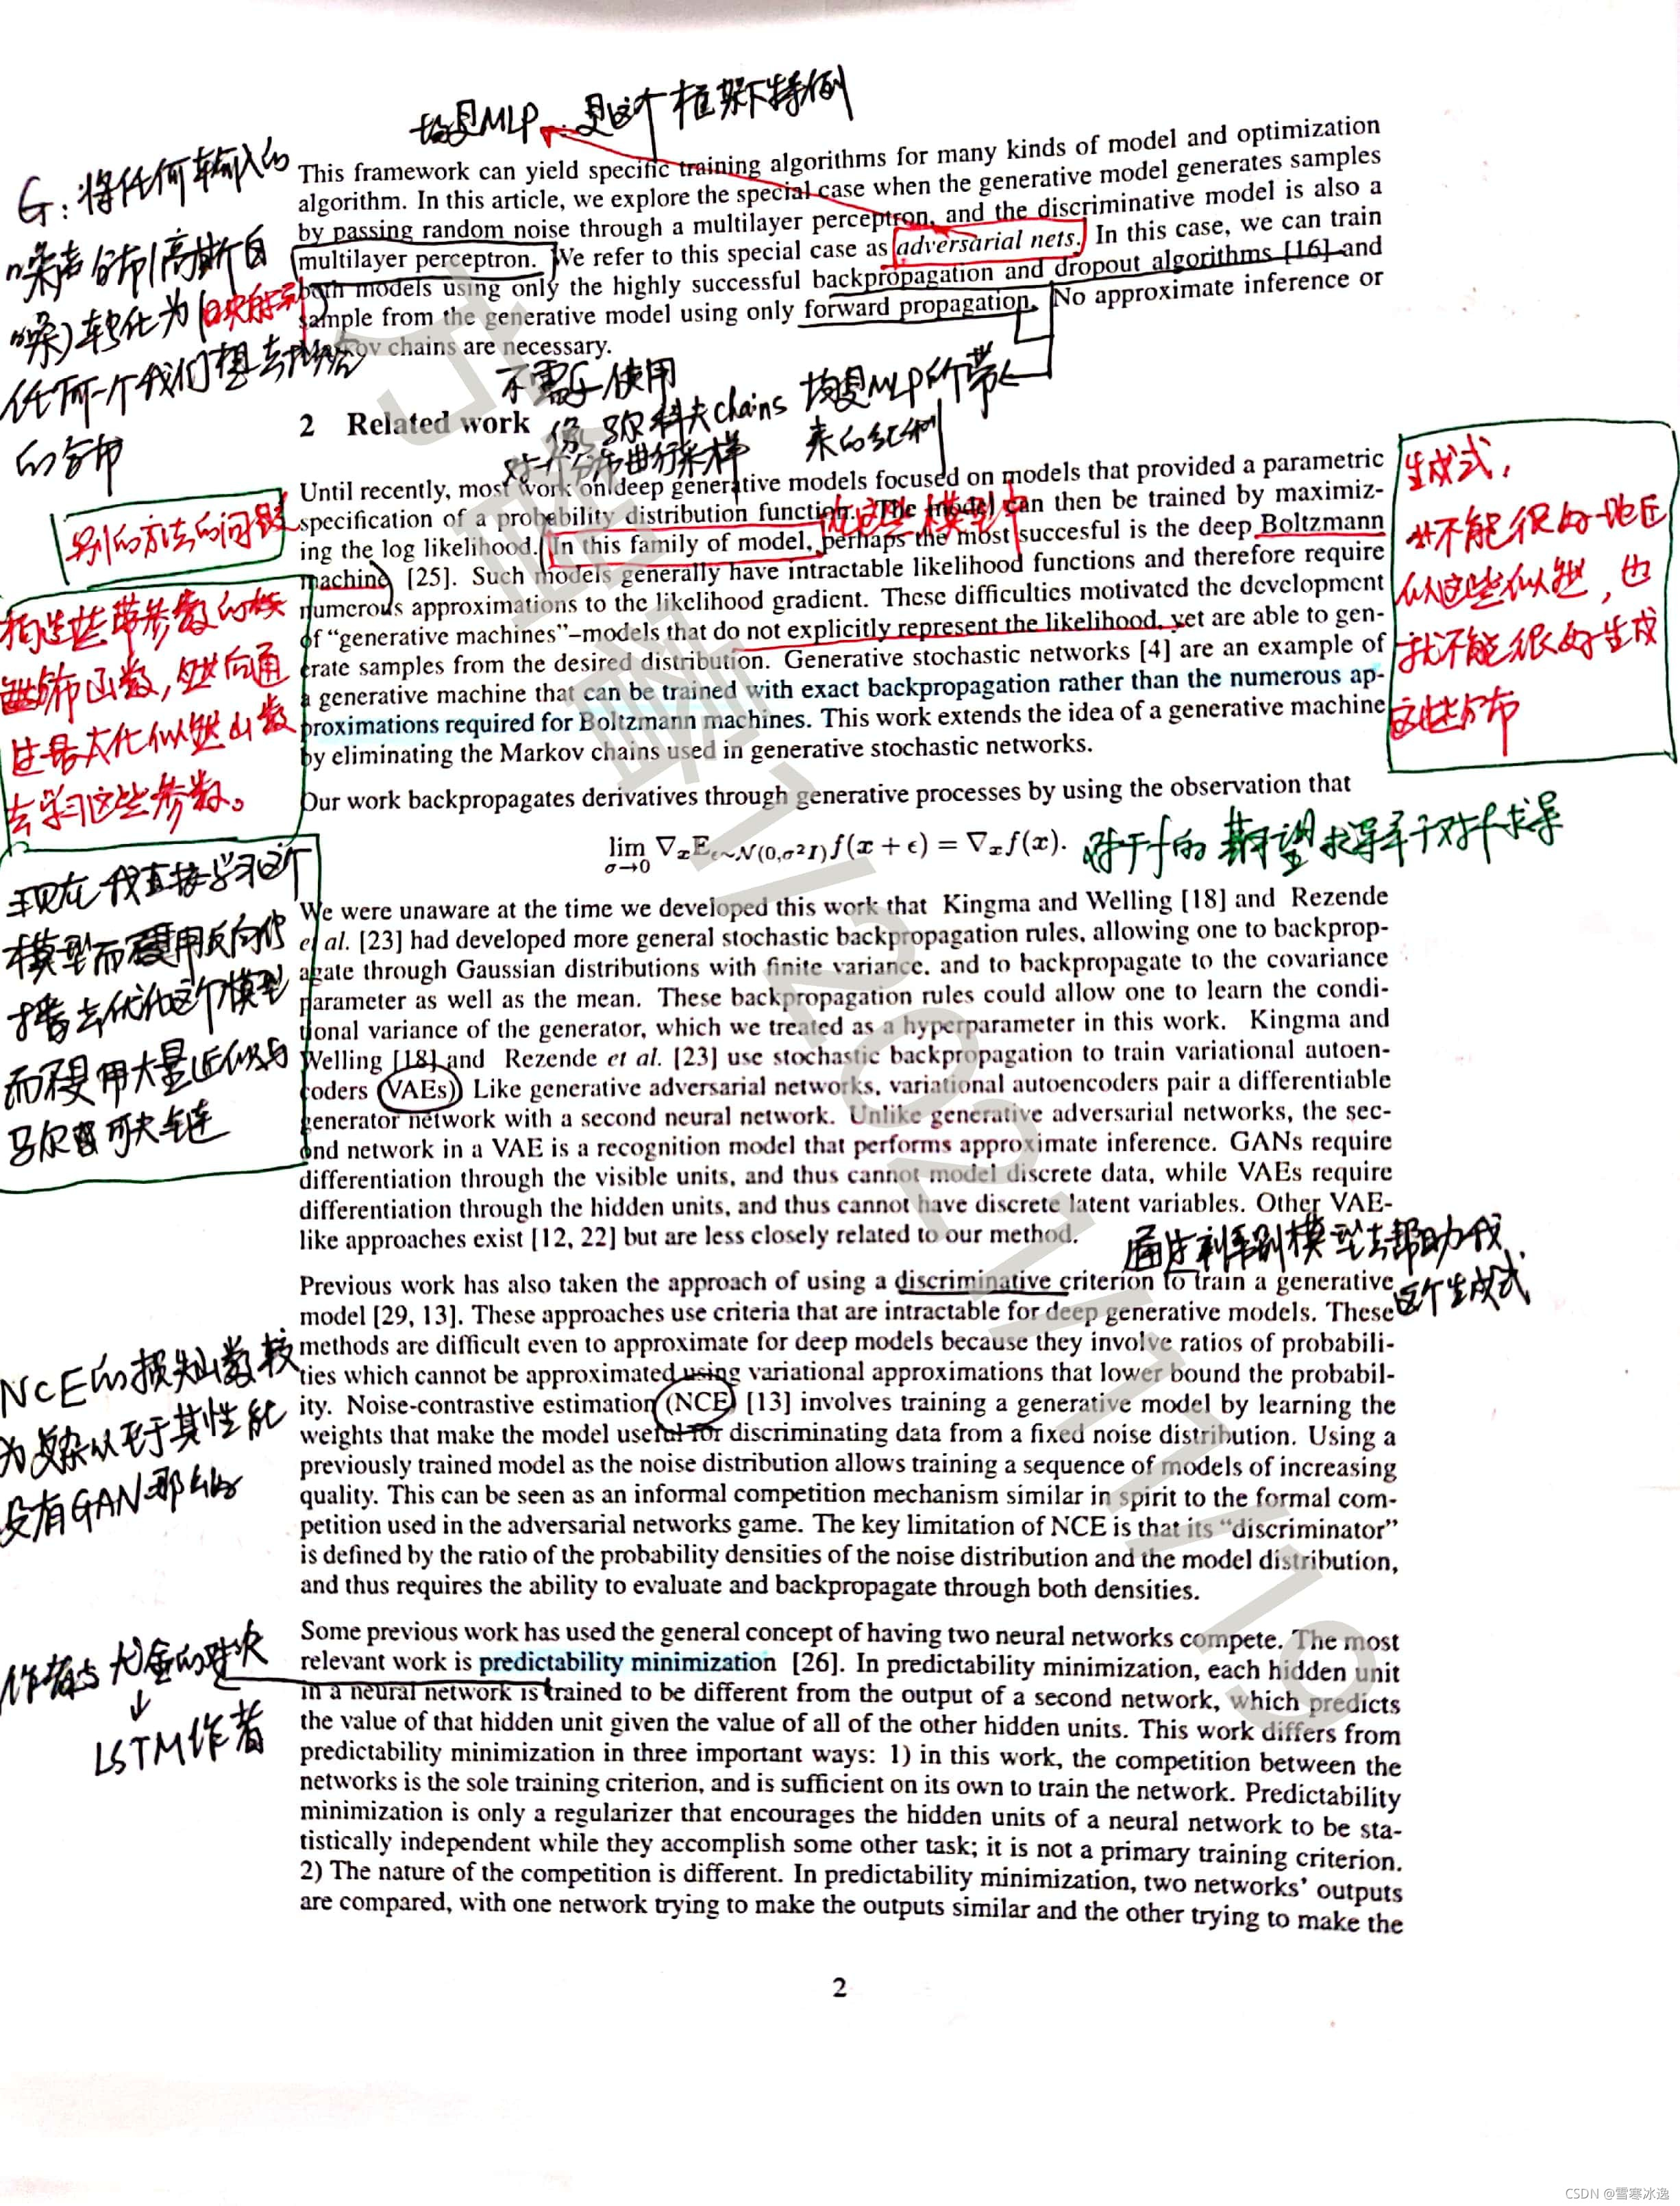 均是MLP 是这个框架下特例
This framework can yield specific training algorithms for many kinds of model and optimization
algorithm. In this article, we explore the special case when the generative model generates samples
by passing random noise through a multilayer perceptron, and the discriminative model is also a
multilayer perceptron. We refer to this special case as adversarial nets. In this case, we can train
both models using only the highly successful backpropagation and dropout algorithms [16] and
sample from the generative model using only forward propagation. No approximate inference or
Markov chains are necessary.
G:将任何输入的
噪声分布(高斯白
噪)转化为(映射到)
任何一个我们想去
的分布
不需要使用
马尔科夫chains
对于分布进行采样
均是MLP所带
来的红利
2 Related work
Until recently, most work on deep generative models focused on models that provided a parametric
specification of a probability distribution function. The model can then be trained by maximiz-
ing the log likelihood. In this family of model, perhaps the most succesful is the deep Boltzmann
machine [25]. Such models generally have intractable likelihood functions and therefore require
numerous approximations to the likelihood gradient. These difficulties motivated the development
of “generative machines”–models that do not explicitly represent the likelihood, yet are able to gen-
erate samples from the desired distribution. Generative stochastic networks [4] are an example of
a generative machine that can be trained with exact backpropagation rather than the numerous ap-
proximations required for Boltzmann machines. This work extends the idea of a generative machine
by eliminating the Markov chains used in generative stochastic networks.
在这些模型中
别的方法的问题
构造些带参数的概
率分布函数,然后通
过最大化似然函数
去学习这些参数。
生成式,
不能很好地区
从这些似然,也
就不能很好生成
这些分布
Our work backpropagates derivatives through generative processes by using the observation that
lim σ→0 ∇xEϵ∼N(0,σ²I)f(x + ϵ) = ∇xf(x).
对于f的期望求导等于对f求导
现在我直接学习这个
模型而要用反向传
播去优化这个模型
而不是用大量近似与
马尔可夫链
We were unaware at the time we developed this work that Kingma and Welling [18] and Rezende
et al. [23] had developed more general stochastic backpropagation rules, allowing one to backprop-
agate through Gaussian distributions with finite variance, and to backpropagate to the covariance
parameter as well as the mean. These backpropagation rules could allow one to learn the condi-
tional variance of the generator, which we treated as a hyperparameter in this work. Kingma and
Welling [18] and Rezende et al. [23] use stochastic backpropagation to train variational autoen-
coders (VAEs). Like generative adversarial networks, variational autoencoders pair a differentiable
generator network with a second neural network. Unlike generative adversarial networks, the sec-
ond network in a VAE is a recognition model that performs approximate inference. GANs require
differentiation through the visible units, and thus cannot model discrete data, while VAEs require
differentiation through the hidden units, and thus cannot have discrete latent variables. Other VAE-
like approaches exist [12, 22] but are less closely related to our method.
通过判别模型去帮助我
这个生成式
Previous work has also taken the approach of using a discriminative criterion to train a generative
model [29, 13]. These approaches use criteria that are intractable for deep generative models. These
methods are difficult even to approximate for deep models because they involve ratios of probabili-
ties which cannot be approximated using variational approximations that lower bound the probabil-
ity. Noise-contrastive estimation (NCE) [13] involves training a generative model by learning the
weights that make the model useful for discriminating data from a fixed noise distribution. Using a
previously trained model as the noise distribution allows training a sequence of models of increasing
quality. This can be seen as an informal competition mechanism similar in spirit to the formal com-
petition used in the adversarial networks game. The key limitation of NCE is that its “discriminator”
is defined by the ratio of the probability densities of the noise distribution and the model distribution,
and thus requires the ability to evaluate and backpropagate through both densities.
NCE的损失函数较
为复杂以至于其性能
没有GAN那么好
Some previous work has used the general concept of having two neural networks compete. The most
relevant work is predictability minimization [26]. In predictability minimization, each hidden unit
in a neural network is trained to be different from the output of a second network, which predicts
the value of that hidden unit given the value of all of the other hidden units. This work differs from
predictability minimization in three important ways: 1) in this work, the competition between the
networks is the sole training criterion, and is sufficient on its own to train the network. Predictability
minimization is only a regularizer that encourages the hidden units of a neural network to be sta-
tistically independent while they accomplish some other task; it is not a primary training criterion.
2) The nature of the competition is different. In predictability minimization, two networks’ outputs
are compared, with one network trying to make the outputs similar and the other trying to make the
作者与
LSTM作者
2
2021/11/19
CSDN @雪寒冰逸